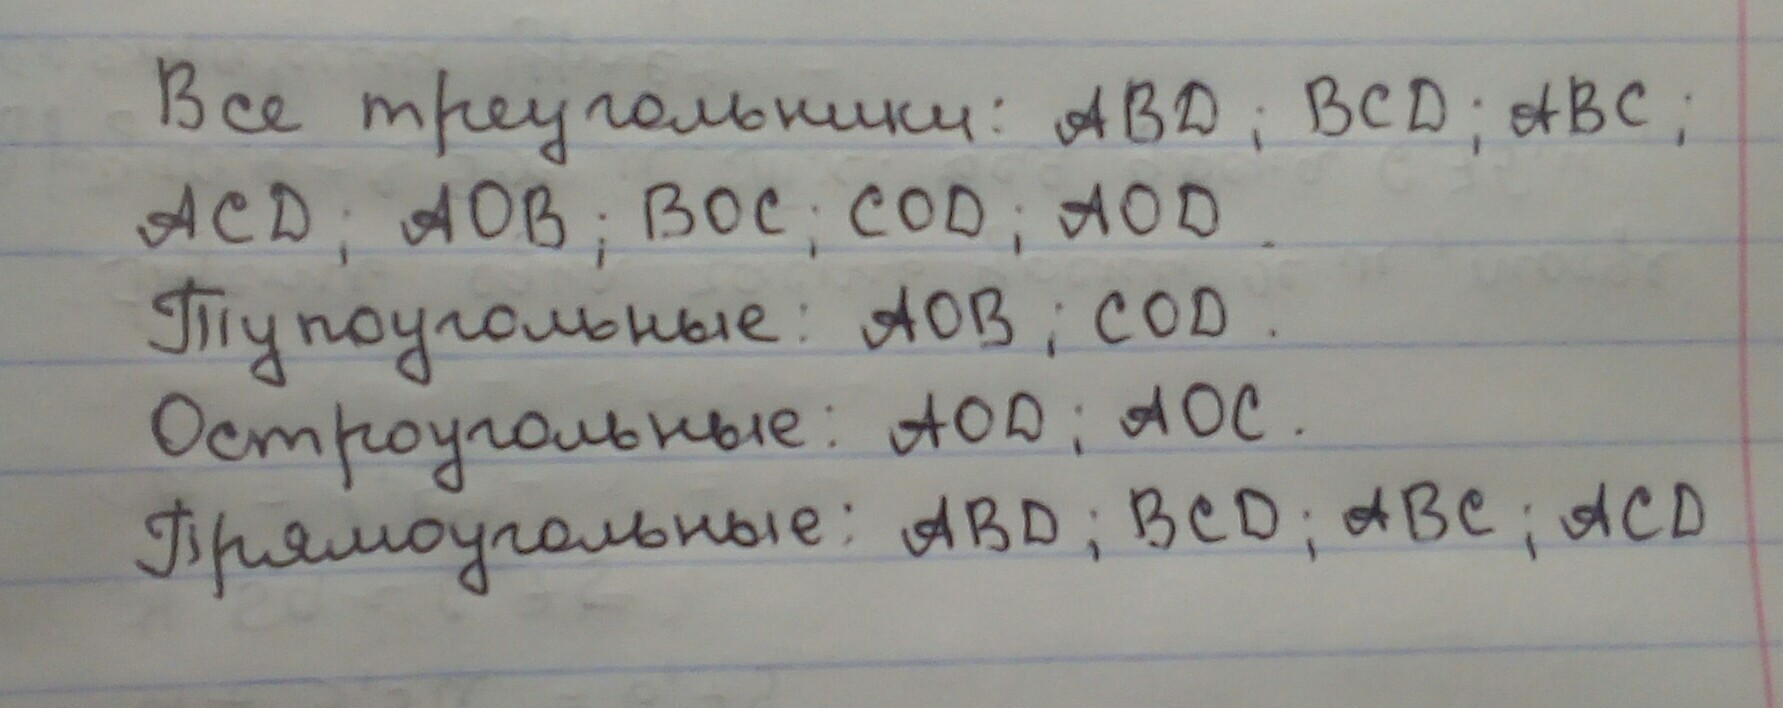 Все треугольники: ABD; BCD; ABC;
ACD; AOB; BOC; COD; AOD.
Тупоугольные: AOB; COD.
Остроугольные: AOD; AOC.
Прямоугольные: ABD; BCD; ABC; ACD